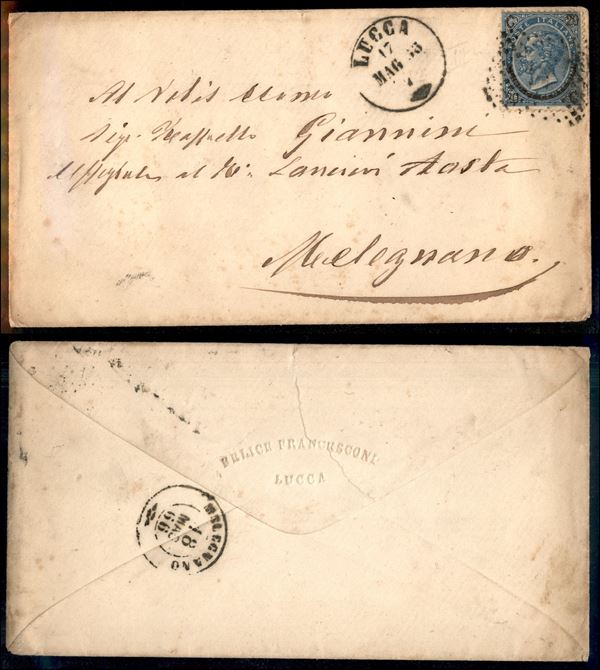 LUCCA
17
MAG 63
Al Nobil Uomo
Sigr. Raffaello Giannini
Uffiziale al Rto. Lancieri Aosta
Melegnano.
FELICE FRANCESCONI
LUCCA
MELEGNANO
18
MAG
66